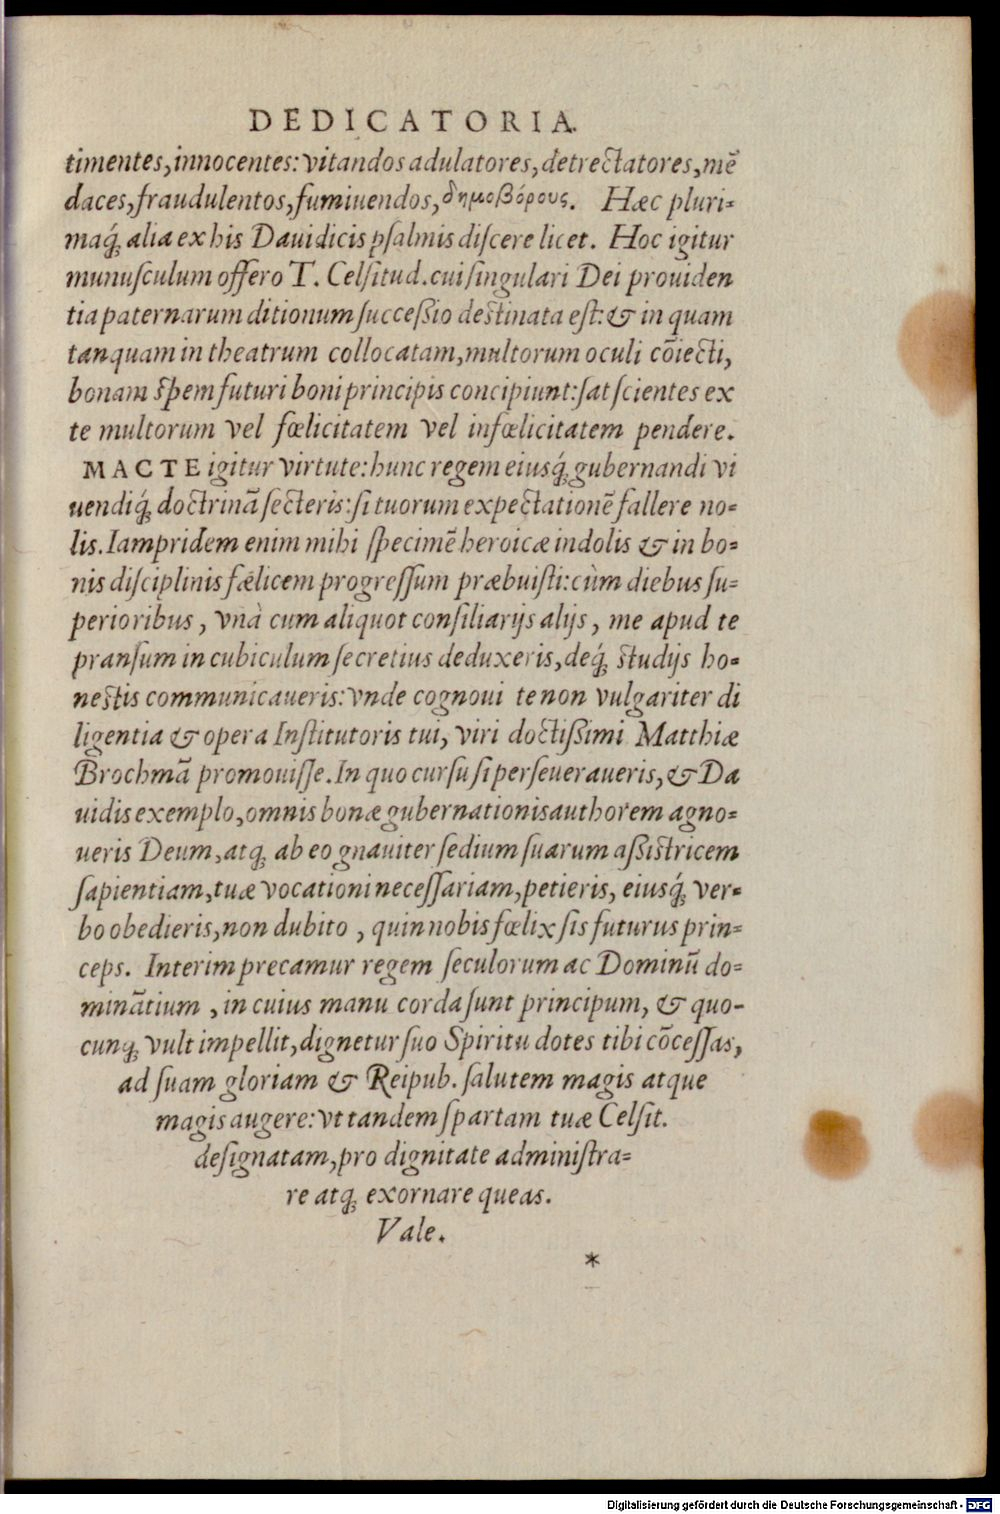 DEDICATORIA.
timentes, innocentes: vitandos adulatores, detrectatores, mẽ
daces, fraudulentos, fumiuendos, δημοβόρους. Hæc pluri-
maq́; alia ex his Dauidicis psalmis discere licet. Hoc igitur
munusculum offero T. Celsitud. cui singulari Dei prouiden
tia paternarum ditionum successio destinata est: & in quam
tanquam in theatrum collocatam, multorum oculi cõiecti,
bonam spem futuri boni principis concipiunt: sat scientes ex
te multorum vel fœlicitatem vel infœlicitatem pendere.
MACTE igitur virtute: hunc regem eiusq́; gubernandi vi
uendiq́; doctrinã secteris: si tuorum expectationẽ fallere no-
lis. Iampridem enim mihi specimẽ heroicæ indolis & in bo-
nis disciplinis fælicem progressum præbuisti: cùm diebus su-
perioribus, vnà cum aliquot consiliarijs alijs, me apud te
pransum in cubiculum secretius deduxeris, deq́; studijs ho-
nestis communicaueris: vnde cognoui te non vulgariter di
ligentia & opera Institutoris tui, viri doctissimi Matthiæ
Brochmã promouisse. In quo cursu si perseueraueris, & Da
uidis exemplo, omnis bonæ gubernationis authorem agno-
ueris Deum, atq; ab eo gnauiter sedium suarum assistricem
sapientiam, tuæ vocationi necessariam, petieris, eiusq́; ver-
bo obedieris, non dubito, quin nobis fœlix sis futurus prin-
ceps. Interim precamur regem seculorum ac Dominũ do-
minãtium, in cuius manu corda sunt principum, & quo-
cunq; vult impellit, dignetur suo Spiritu dotes tibi cõcessas,
ad suam gloriam & Reipub. salutem magis atque
magis augere: vt tandem spartam tuæ Celsit.
designatam, pro dignitate administra-
re atq; exornare queas.
Vale.
*
Digitalisierung gefördert durch die Deutsche Forschungsgemeinschaft - DFG